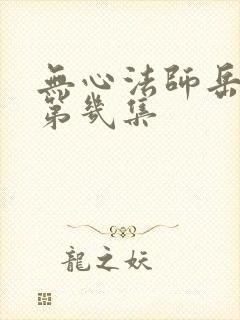 無心法師岳
第幾集
龍之妖